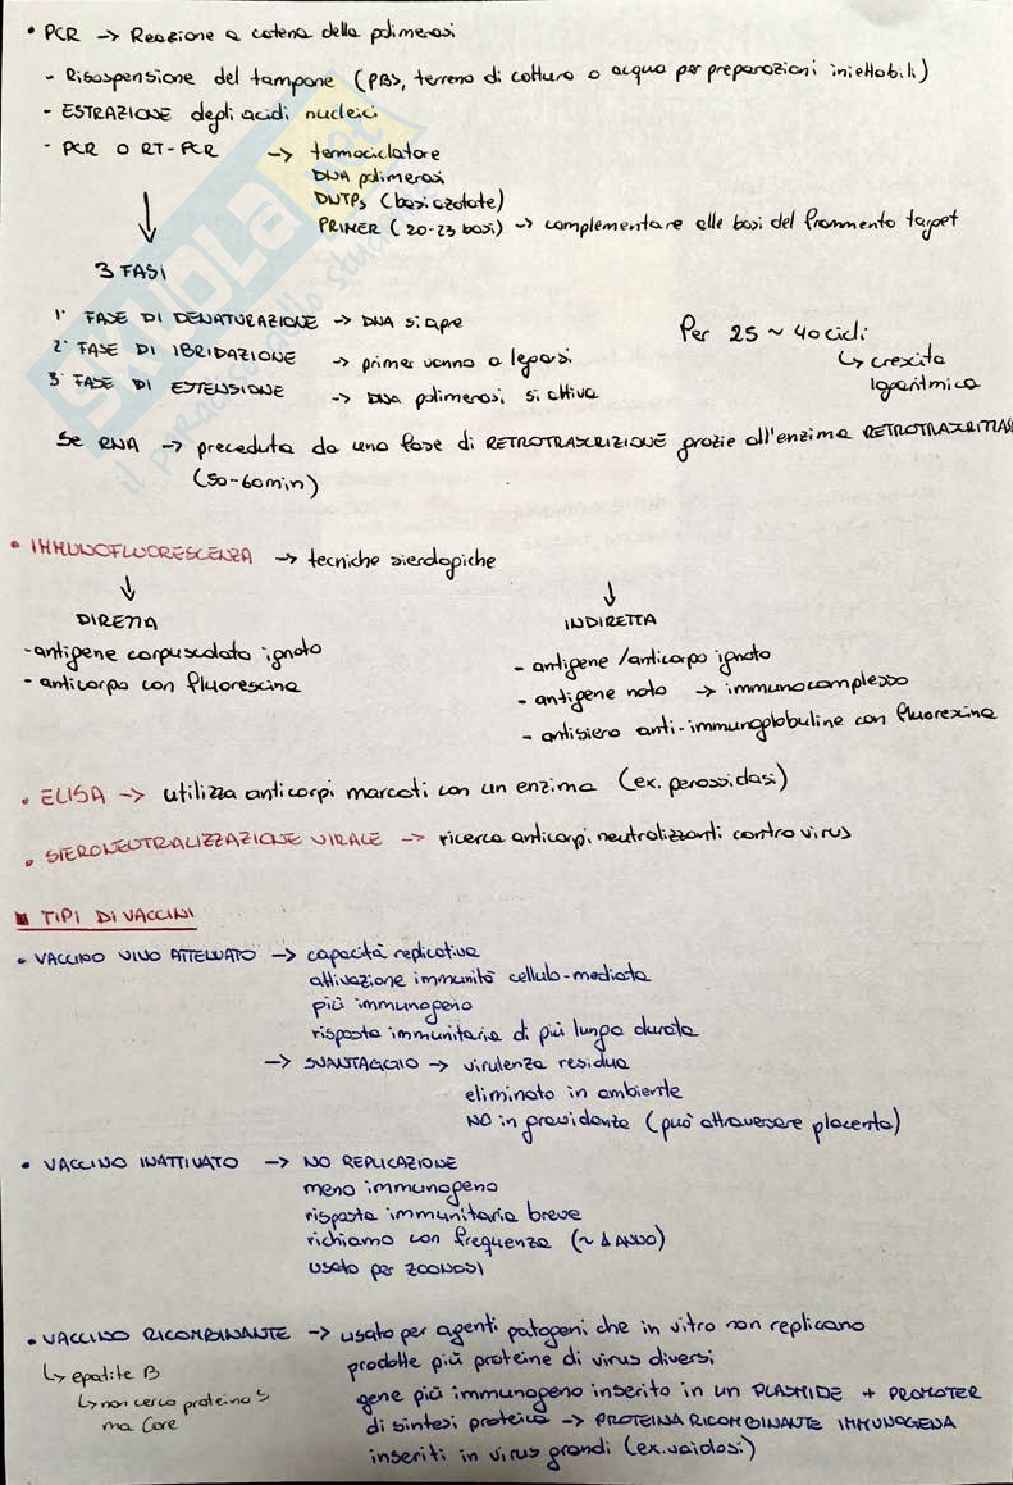 • PCR → Reazione a catena della polimerasi
- Risospensione del tampone (PBS, terreno di coltura o acqua per preparazioni iniettabili)
- ESTRAZIONE degli acidi nucleici
- PCR O RT-PCR → termociclatore
DNA polimerasi
DNTPs (basi azotate)
PRIMER (20-23 basi) → complementare alle basi del frammento target
↓
3 FASI
1° FASE DI DENATURAZIONE → DNA si apre
2° FASE DI IBRIDAZIONE → primer vanno a legarsi
3° FASE DI ESTENSIONE → DNA polimerasi si attiva
Per 25 ~ 40 cicli
↳ crescita
logaritmica
Se RNA → preceduta da una fase di RETROTRASCRIZIONE grazie all'enzima RETROTRASCRITTAS
(50-60min)
• IMMUNOFLUORESCENZA → tecniche sierologiche
↓ ↓
DIRETTA INDIRETTA
- antigene corpuscolato ignoto
- anticorpo con fluorescina
- antigene/anticorpo ignoto
- antigene noto → immunocomplesso
- antisiero anti-immunoglobuline con fluorexina
• ELISA → utilizza anticorpi marcati con un enzima (ex. perossidasi)
• SIERONEUTRALIZZAZIONE VIRALE → ricerca anticorpi neutralizzanti contro virus
■ TIPI DI VACCINI
• VACCINO VIVO ATTENUATO → capacità replicativa
attivazione immunità cellulo-mediata
più immunogeno
risposta immunitaria di più lunga durata
→ SVANTAGGIO → virulenza residua
eliminato in ambiente
NO in gravidanza (può attraversare placenta)
• VACCINO INATTIVATO → NO REPLICAZIONE
meno immunogeno
risposta immunitaria breve
richiamo con frequenza (~ 1 ANNO)
usato per ZOONOSI
• VACCINO RICOMBINANTE → usato per agenti patogeni che in vitro non replicano
↳ epatite B
↳ non cerco proteina S
ma Core
prodotte più proteine di virus diversi
gene più immunogeno inserito in un PLASMIDE + PROMOTER
di sintesi proteica → PROTEINA RICOMBINANTE IMMUNOGENA
inseriti in virus grandi (ex. vaiolosi)
SKUOLA.net